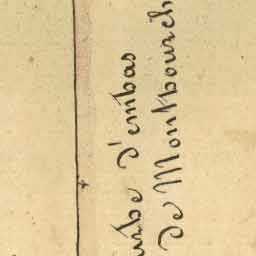 urbe d'embas
de Montbourch